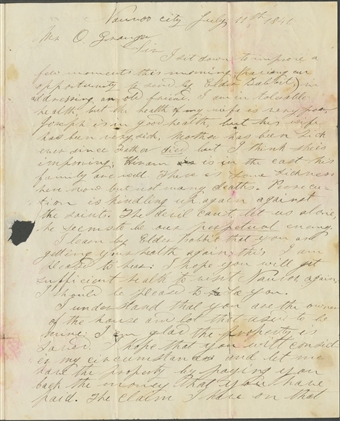 Nauvoo city July 11th 1841
Mr O. Granger
Sir
I set down to improve a
few moments this morning having an
opportunity to send by Elder Babbitt in
addressing an old friend. I am in tolerable
health, but the health of my wife is very poor
Joseph is in good health, but his wife
has been very sick. Mother has been sick
ever since Father died but I think she is
improving. Hiram is in the east his
family are well. There is some sickness
here now but not many deaths. Persecu
tion is kindling up again against
the saints. The devil cant let us alone,
he seems to be our perpetual enemy
I learn by Elder Babbit that you are
getting your health again this I am
pleased to hear. I hope you will get
sufficient health to visit Nauvoo again
I should be pleased to see you.
I understand that you are the owner
of the house and lot that used to be
mine. I am glad the property is
saved. I hope that you will consid
er my circumstances and let me
have the property by paying you
back the money that you have
paid. The claim I have on that